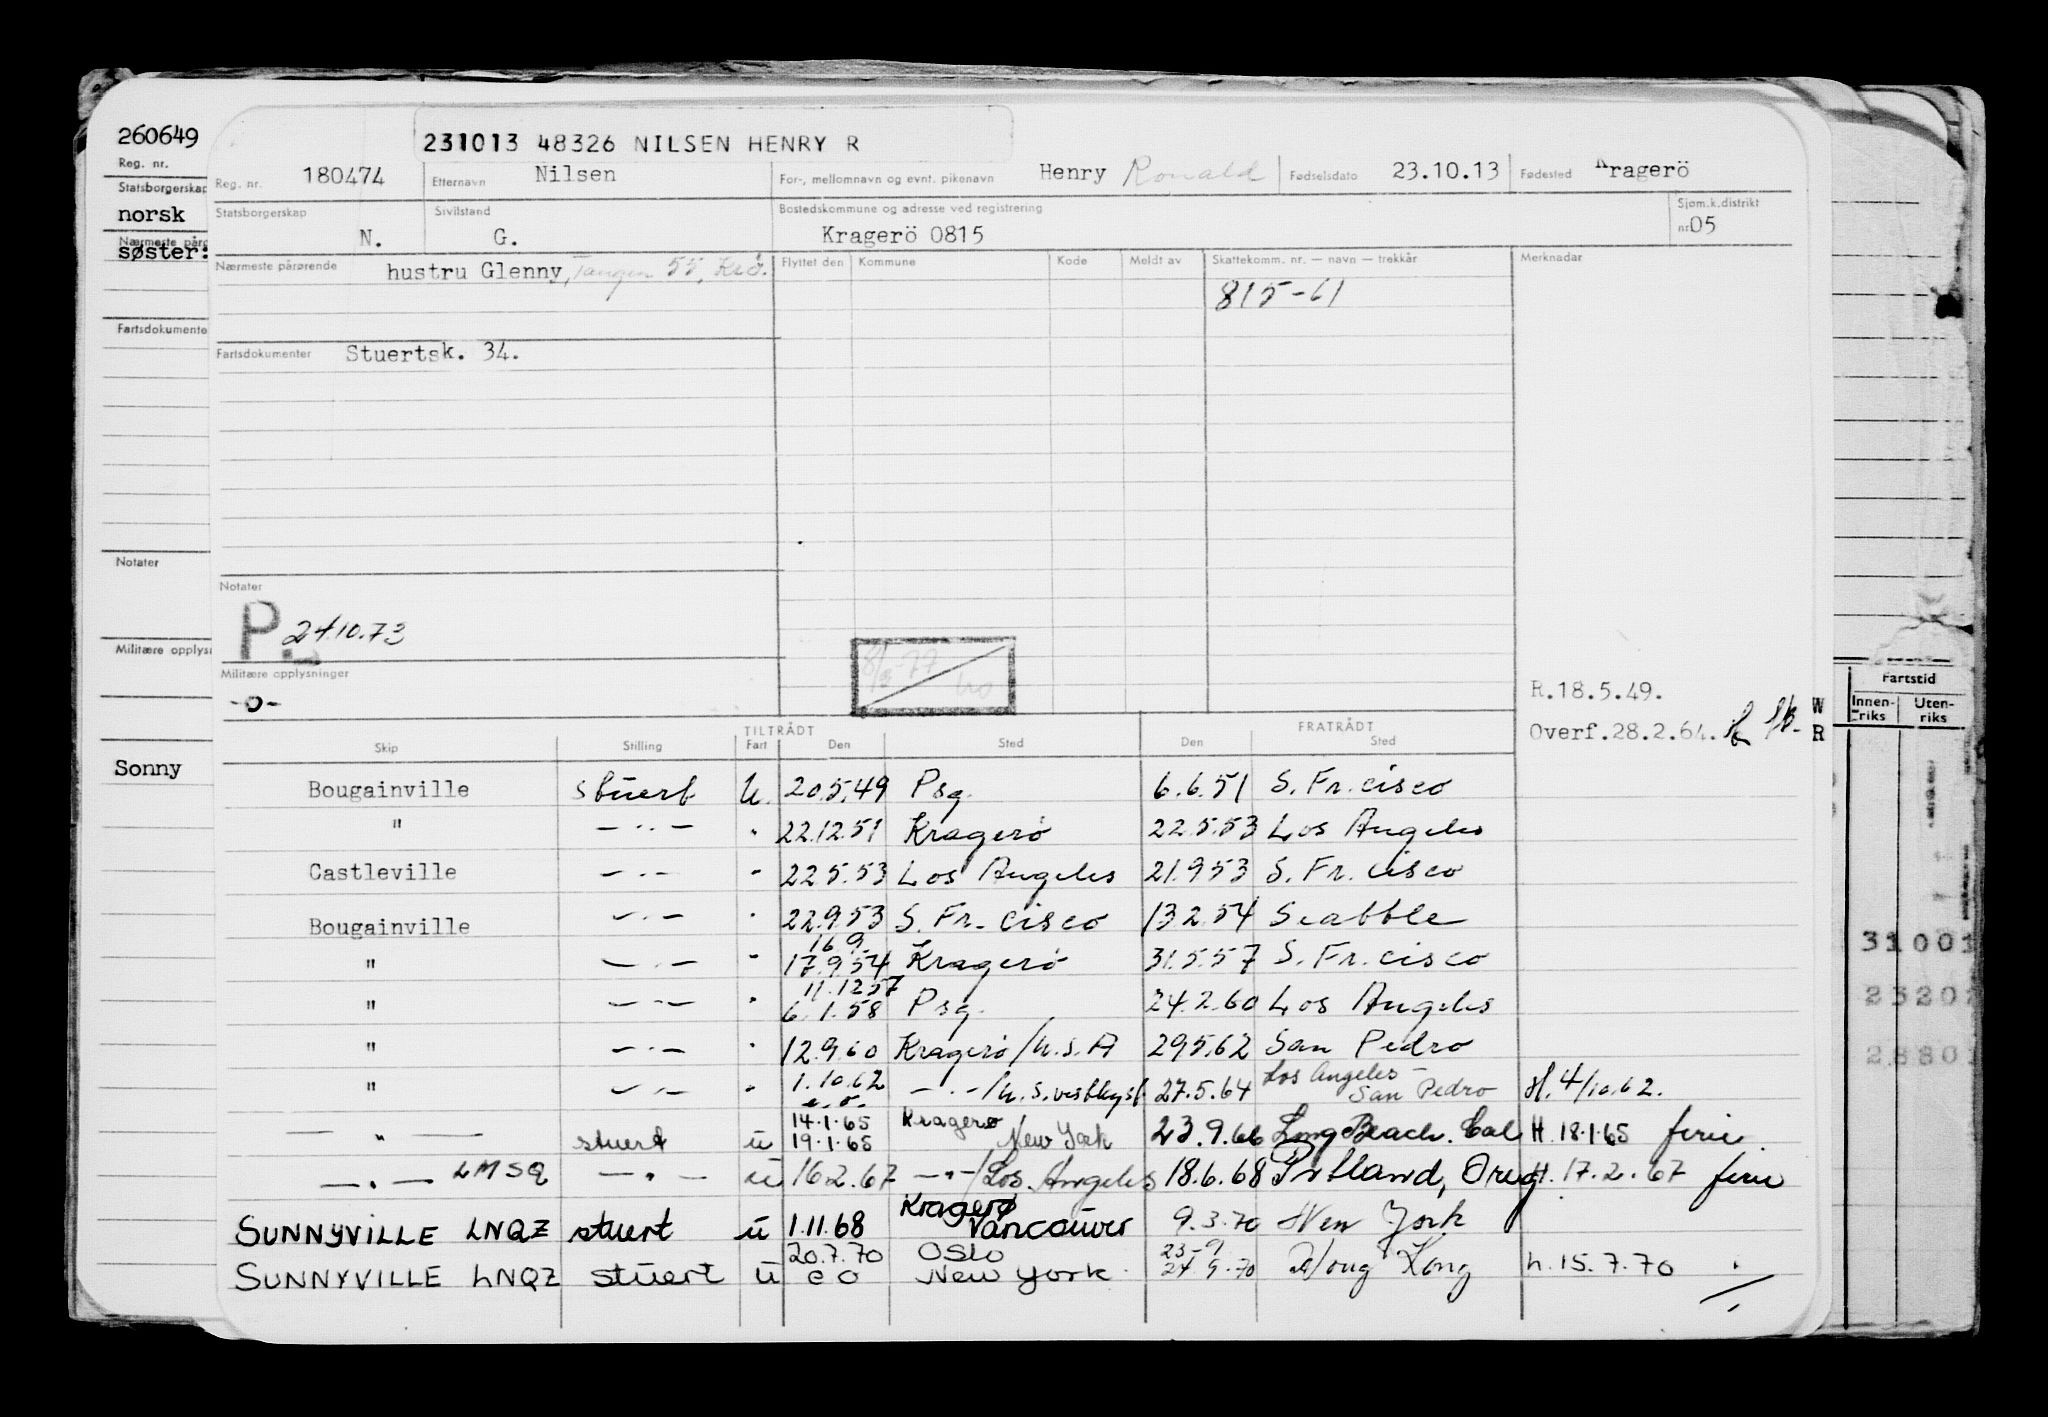 260649
Reg. nr.
Statsborgerskap
norsk
Nærmeste påro
søster:
Fartsdokumente
Notater
Militære opplysn
Sonny
231013 48326 NILSEN HENRY R
Reg. nr. 180474 Etternavn Nilsen For-, mellomnavn og evnt. pikenavn Henry Ronald Fødselsdato 23.10.13 Fødested Kragerö
Statsborgerskap N. Sivilstand G. Bostedskommune og adresse ved registrering Kragerö 0815 Sjøm.k.distrikt nr. 05
Nærmeste pårørende hustru Glenny, Tangen 55, Krö. Flyttet den Kommune Kode Meldt av Skattekomm. nr. — navn — trekkår Merknader
815-61
Fartsdokumenter Stuertsk. 34.
Notater
P. 24.10.73
Militære opplysninger
-o-
R.18.5.49.
Overf.28.2.64.
W
R
Fartstid
Innen-riks Uten-riks
TILTRÅDT FRATRÅDT
Skip Stilling Fart Den Sted Den Sted
Bougainville stuert U. 20.5.49 Psg. 6.6.51 S. Fr.cisco
" —"— " 22.12.51 Kragerö 22.5.53 Los Angeles
Castleville —"— " 22.5.53 Los Angeles 21.9.53 S. Fr.cisco
Bougainville —"— " 22.9.53 S. Fr.cisco 13.2.54 Seattle
16.9.
" —"— " 17.9.54 Kragerö 31.5.57 S. Fr.cisco
11.12.57
" —"— " 6.1.58 Psg. 24.2.60 Los Angeles
" —"— " 12.9.60 Kragerö/U.S.A 29.5.62 San Pedro
" —"— " 1.10.62 e.o. —"—/U.S.vestkyst 27.5.64 Los Angeles - San Pedro H. 4/10.62.
14.1.65 Kragerø
—"— stuert u 19.1.65 New York 23.9.66 Long Beach. Cal H. 18.1.65 ferie
—"— LMSQ —"— u 16.2.67 —"—/Los Angeles 18.6.68 Portland, Oreg H. 17.2.67 ferie
Kragerø
SUNNYVILLE LNQZ stuert u 1.11.68 Vancouver 9.3.70 New York
20.7.70 Oslo 23-9
SUNNYVILLE LNQZ stuert u e o New York. 24.9.70 Hong Kong h. 15.7.70
31001